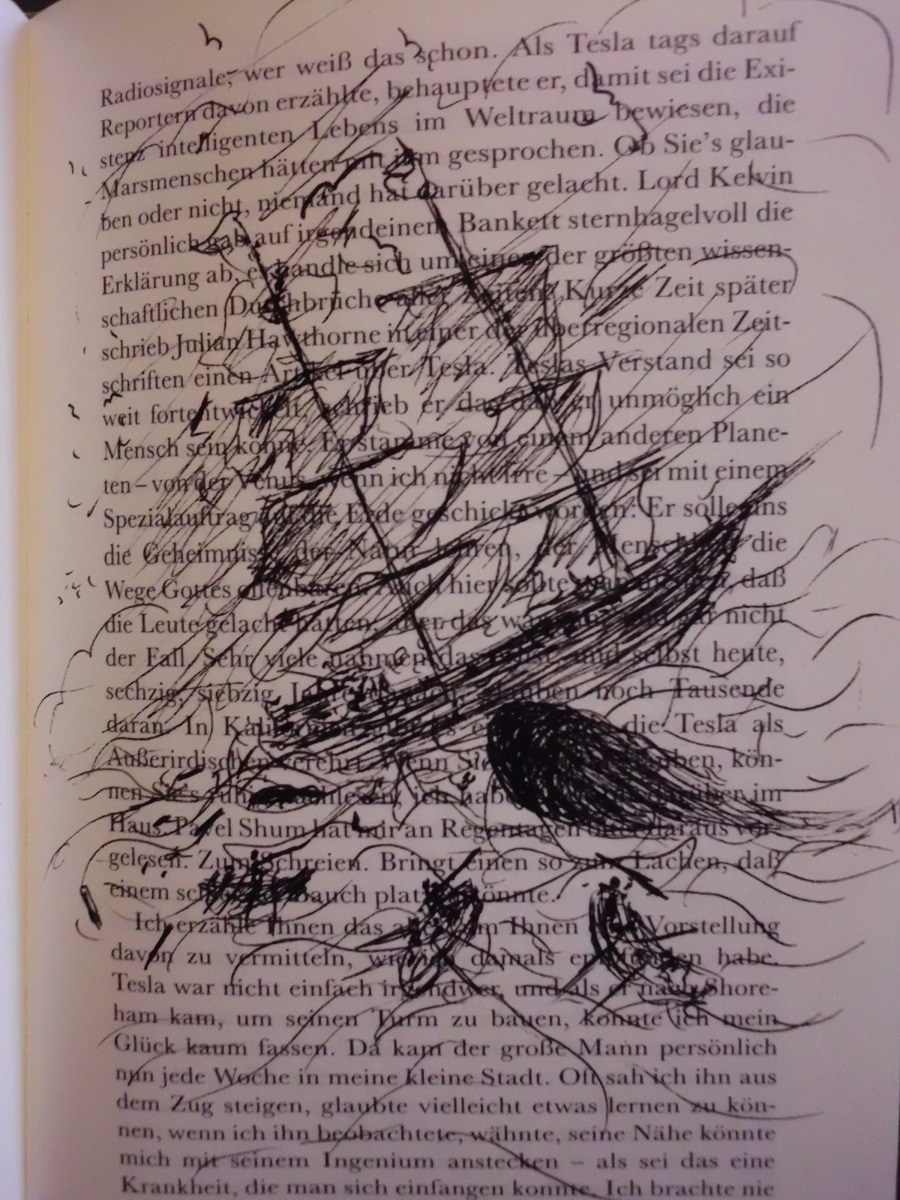 Radiosignale, wer weiß das schon. Als Tesla tags darauf
Reportern davon erzählte, behauptete er, damit sei die Exi-
stenz intelligenten Lebens im Weltraum bewiesen, die
Marsmenschen hätten mit ihm gesprochen. Ob Sie's glau-
ben oder nicht, niemand hat darüber gelacht. Lord Kelvin
persönlich gab auf irgendeinem Bankett sternhagelvoll die
Erklärung ab, es handle sich um einen der größten wissen-
schaftlichen Durchbrüche aller Zeiten. Kurze Zeit später
schrieb Julian Hawthorne in einer der überregionalen Zeit-
schriften einen Artikel über Tesla. Teslas Verstand sei so
weit fortentwickelt, schrieb er, daß er unmöglich ein
Mensch sein könne. Er stamme von einem anderen Plane-
ten – von der Venus, wenn ich nicht irre – und sei mit einem
Spezialauftrag auf die Erde geschickt worden: Er solle uns
die Geheimnisse der Natur lehren, der Menschheit die
Wege Gottes offenbaren. Auch hier sollte man, daß
die Leute gelacht hätten, aber das war gar nicht
der Fall. Sehr viele nahmen das ernst, und selbst heute,
sechzig, siebzig Jahre glauben noch Tausende
daran. In die Tesla als
Außerirdischen verehrt. Wenn glauben, kön-
nen Sie's ruhig nachlesen, ich habe darüber im
Haus. Pavel Shum hat mir an Regentagen öfter daraus vor-
gelesen. Zum Schreien. Bringt einen so zum Lachen, daß
einem schier der Bauch platzen könnte.
Ich erzähle Ihnen das alles, um Ihnen Vorstellung
davon zu vermitteln, wie ich damals empfunden habe.
Tesla war nicht einfach irgendwer, und als er nach Shore-
ham kam, um seinen Turm zu bauen, konnte ich mein
Glück kaum fassen. Da kam der große Mann persönlich
nun jede Woche in meine kleine Stadt. Oft sah ich ihn aus
dem Zug steigen, glaubte vielleicht etwas lernen zu kön-
nen, wenn ich ihn beobachtete, wähnte, seine Nähe könnte
mich mit seinem Ingenium anstecken – als sei das eine
Krankheit, die man sich einfangen konnte. Ich brachte nie